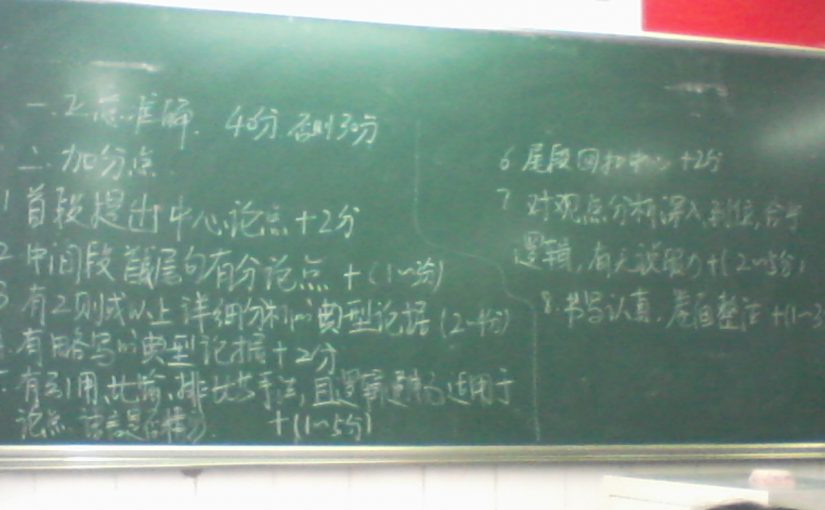 一.立意准确. 40分 否则30分
二.加分点
1 首段提出中心论点+2分
2 中间段首尾句有分论点 +(1~分)
3 有2则或以上详细分析的典型论据(2-4分)
有略写的典型论据+2分
有引用、比喻、排比等手法,且逻辑适用于
论点 +(1~5分)
6 尾段回扣中心 +2分
7 对观点分析深入到位,合乎
逻辑,有无说服力+(2~5分)
8.书写认真.卷面整洁 +(1~3